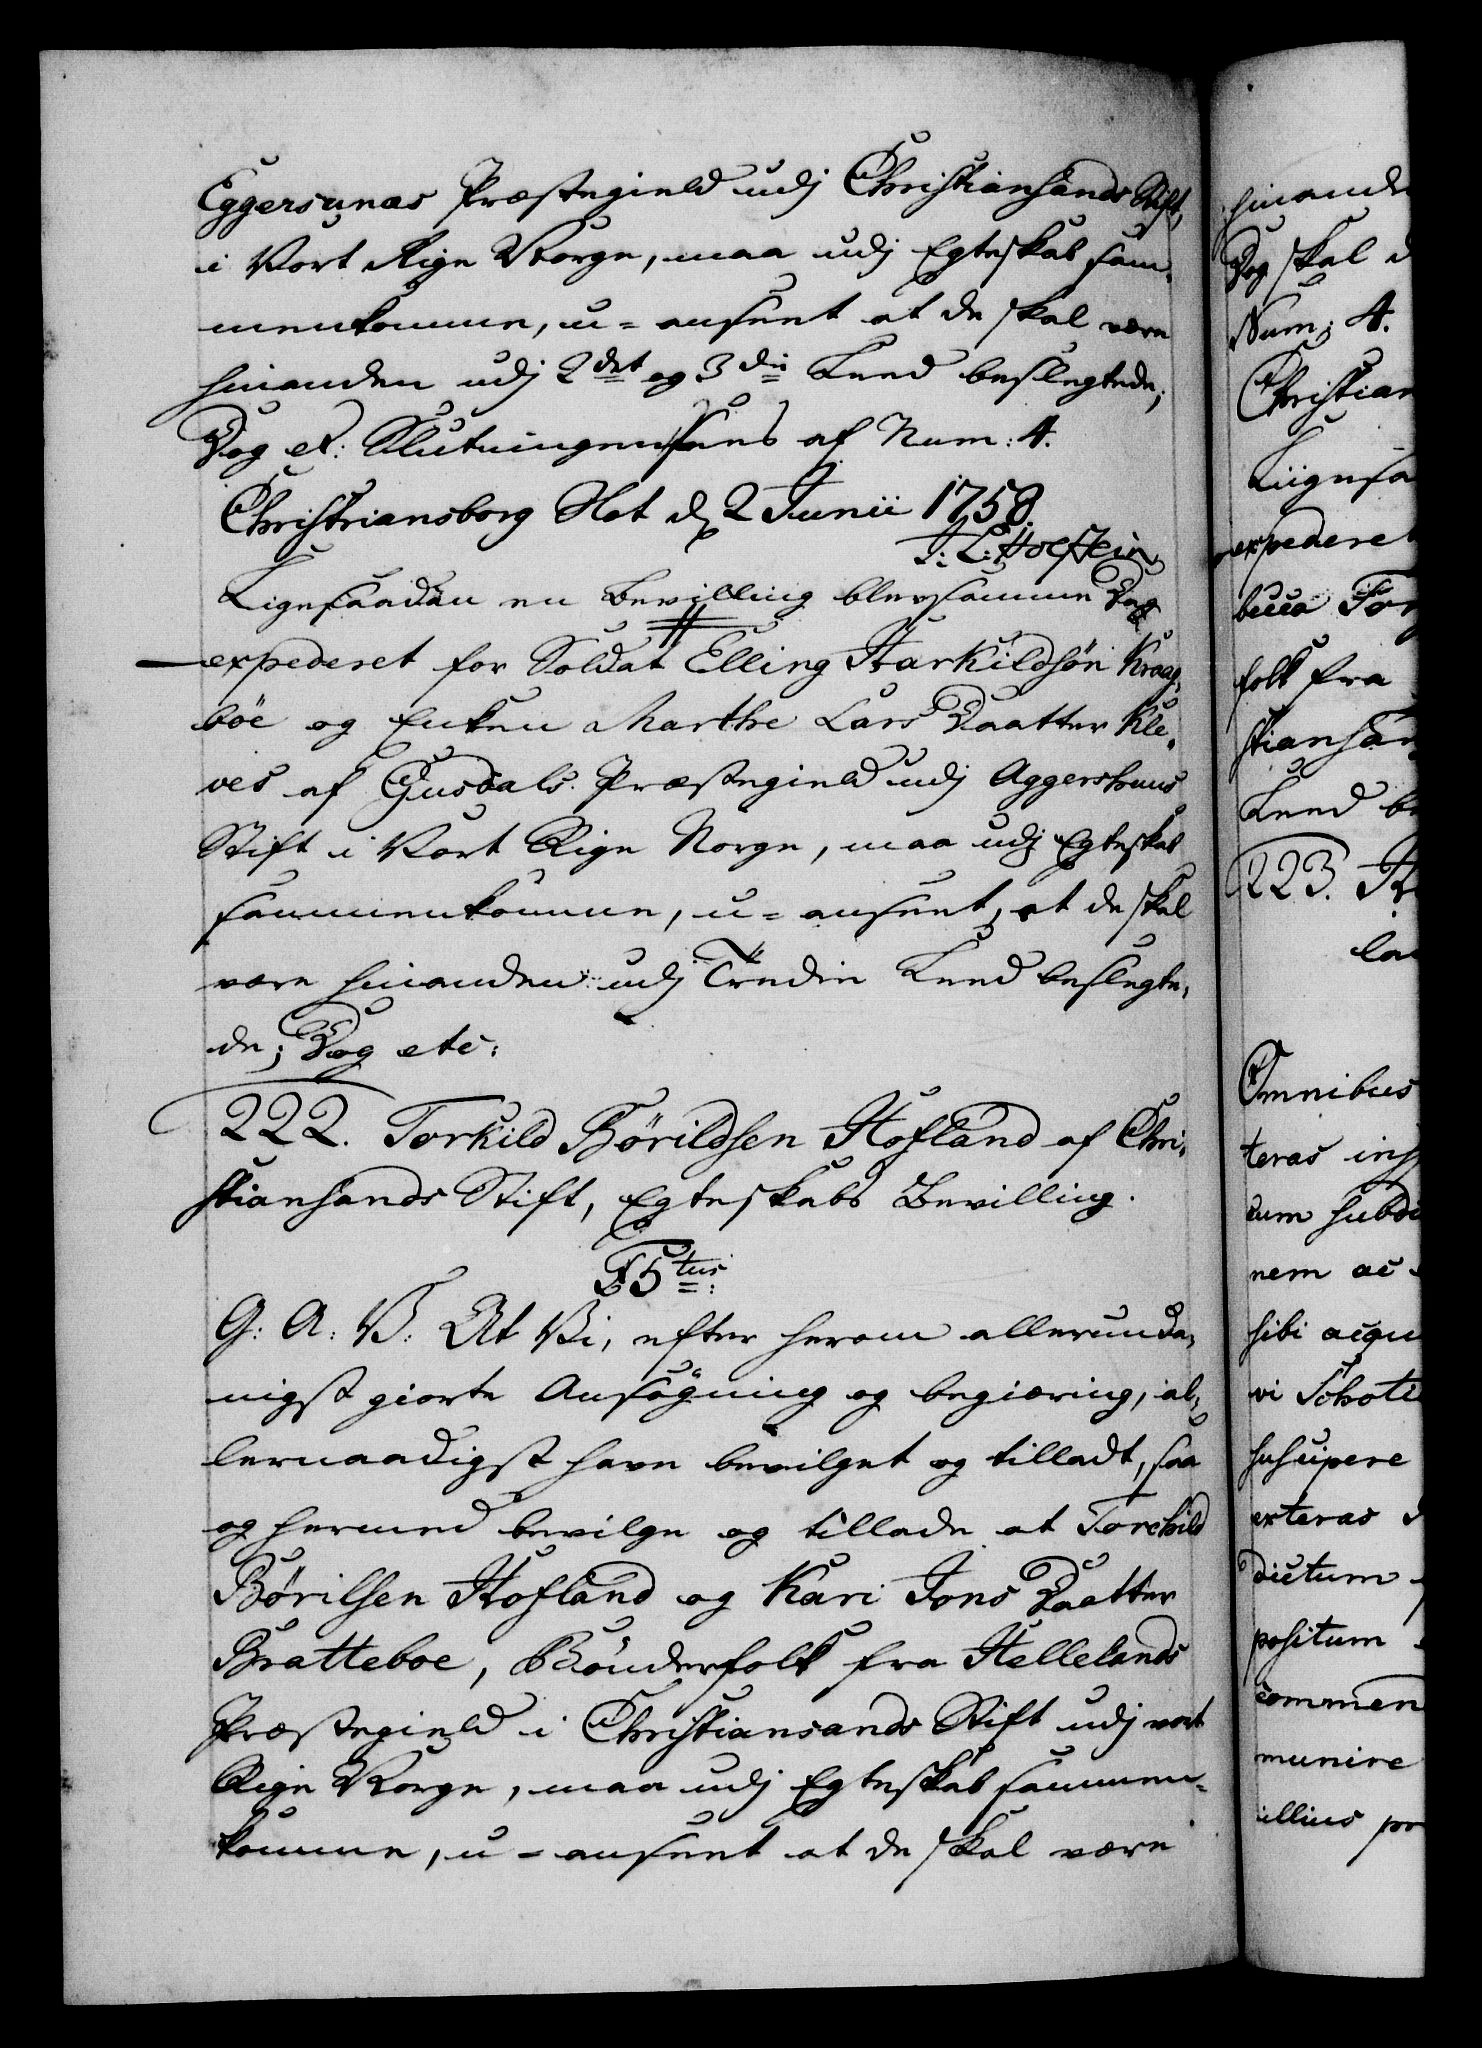 Eggersunds Præstegield udj Christiansands Stift,
i Vort Rige Norge, maa udj Egteskab sam-
menkomme, u=anseet at de skal være
hinanden udj 2det og 3die Leed beslegtede;
Dog et: Slutningen som af Num: 4.
Christiansborg Slot d 2 Junii 1758.
J: L: Holstein
Ligesaadan en Bevilling blev samme Dag
expederet for Soldat Elling Tarkildsön Kraag-
böe og Enken Marthe Lars Daatter Kle-
ves af Gusdals Præstegield udj Aggershuus
Stift i Vort Rige Norge, maa udj Egteskab
sammenkomme, u=anseet, at de skal
være hinanden udj Tredie Leed beslegte-
de; Dog etc:
222. Torkild Börildsen Hofland af Chri-
stiansands Stift, Egteskabs Bevilling.
F5tus
G: A: V: At Vi, efter herom allerunda-
nigst giorte Ansögning og begiæring, al-
lernaadigst have bevilget og tilladt, saa
og hermed bevilge og tillade at Torchild
Börilsen Hofland og Kari Jons Daatter
Bratteboe, Bönderfolk fra Hellelands
Præstegield i Christiansands Stift udj vort
Rige Norge, maa udj Egteskab sammen-
komme, u=anseet at de skal være
Dog skal
Num; 4.
Christian
expederet
folk fra
223.
Omnibus
teras
nem ac
sibi
vi
exteras
dictum
positum
commen
munire
illius